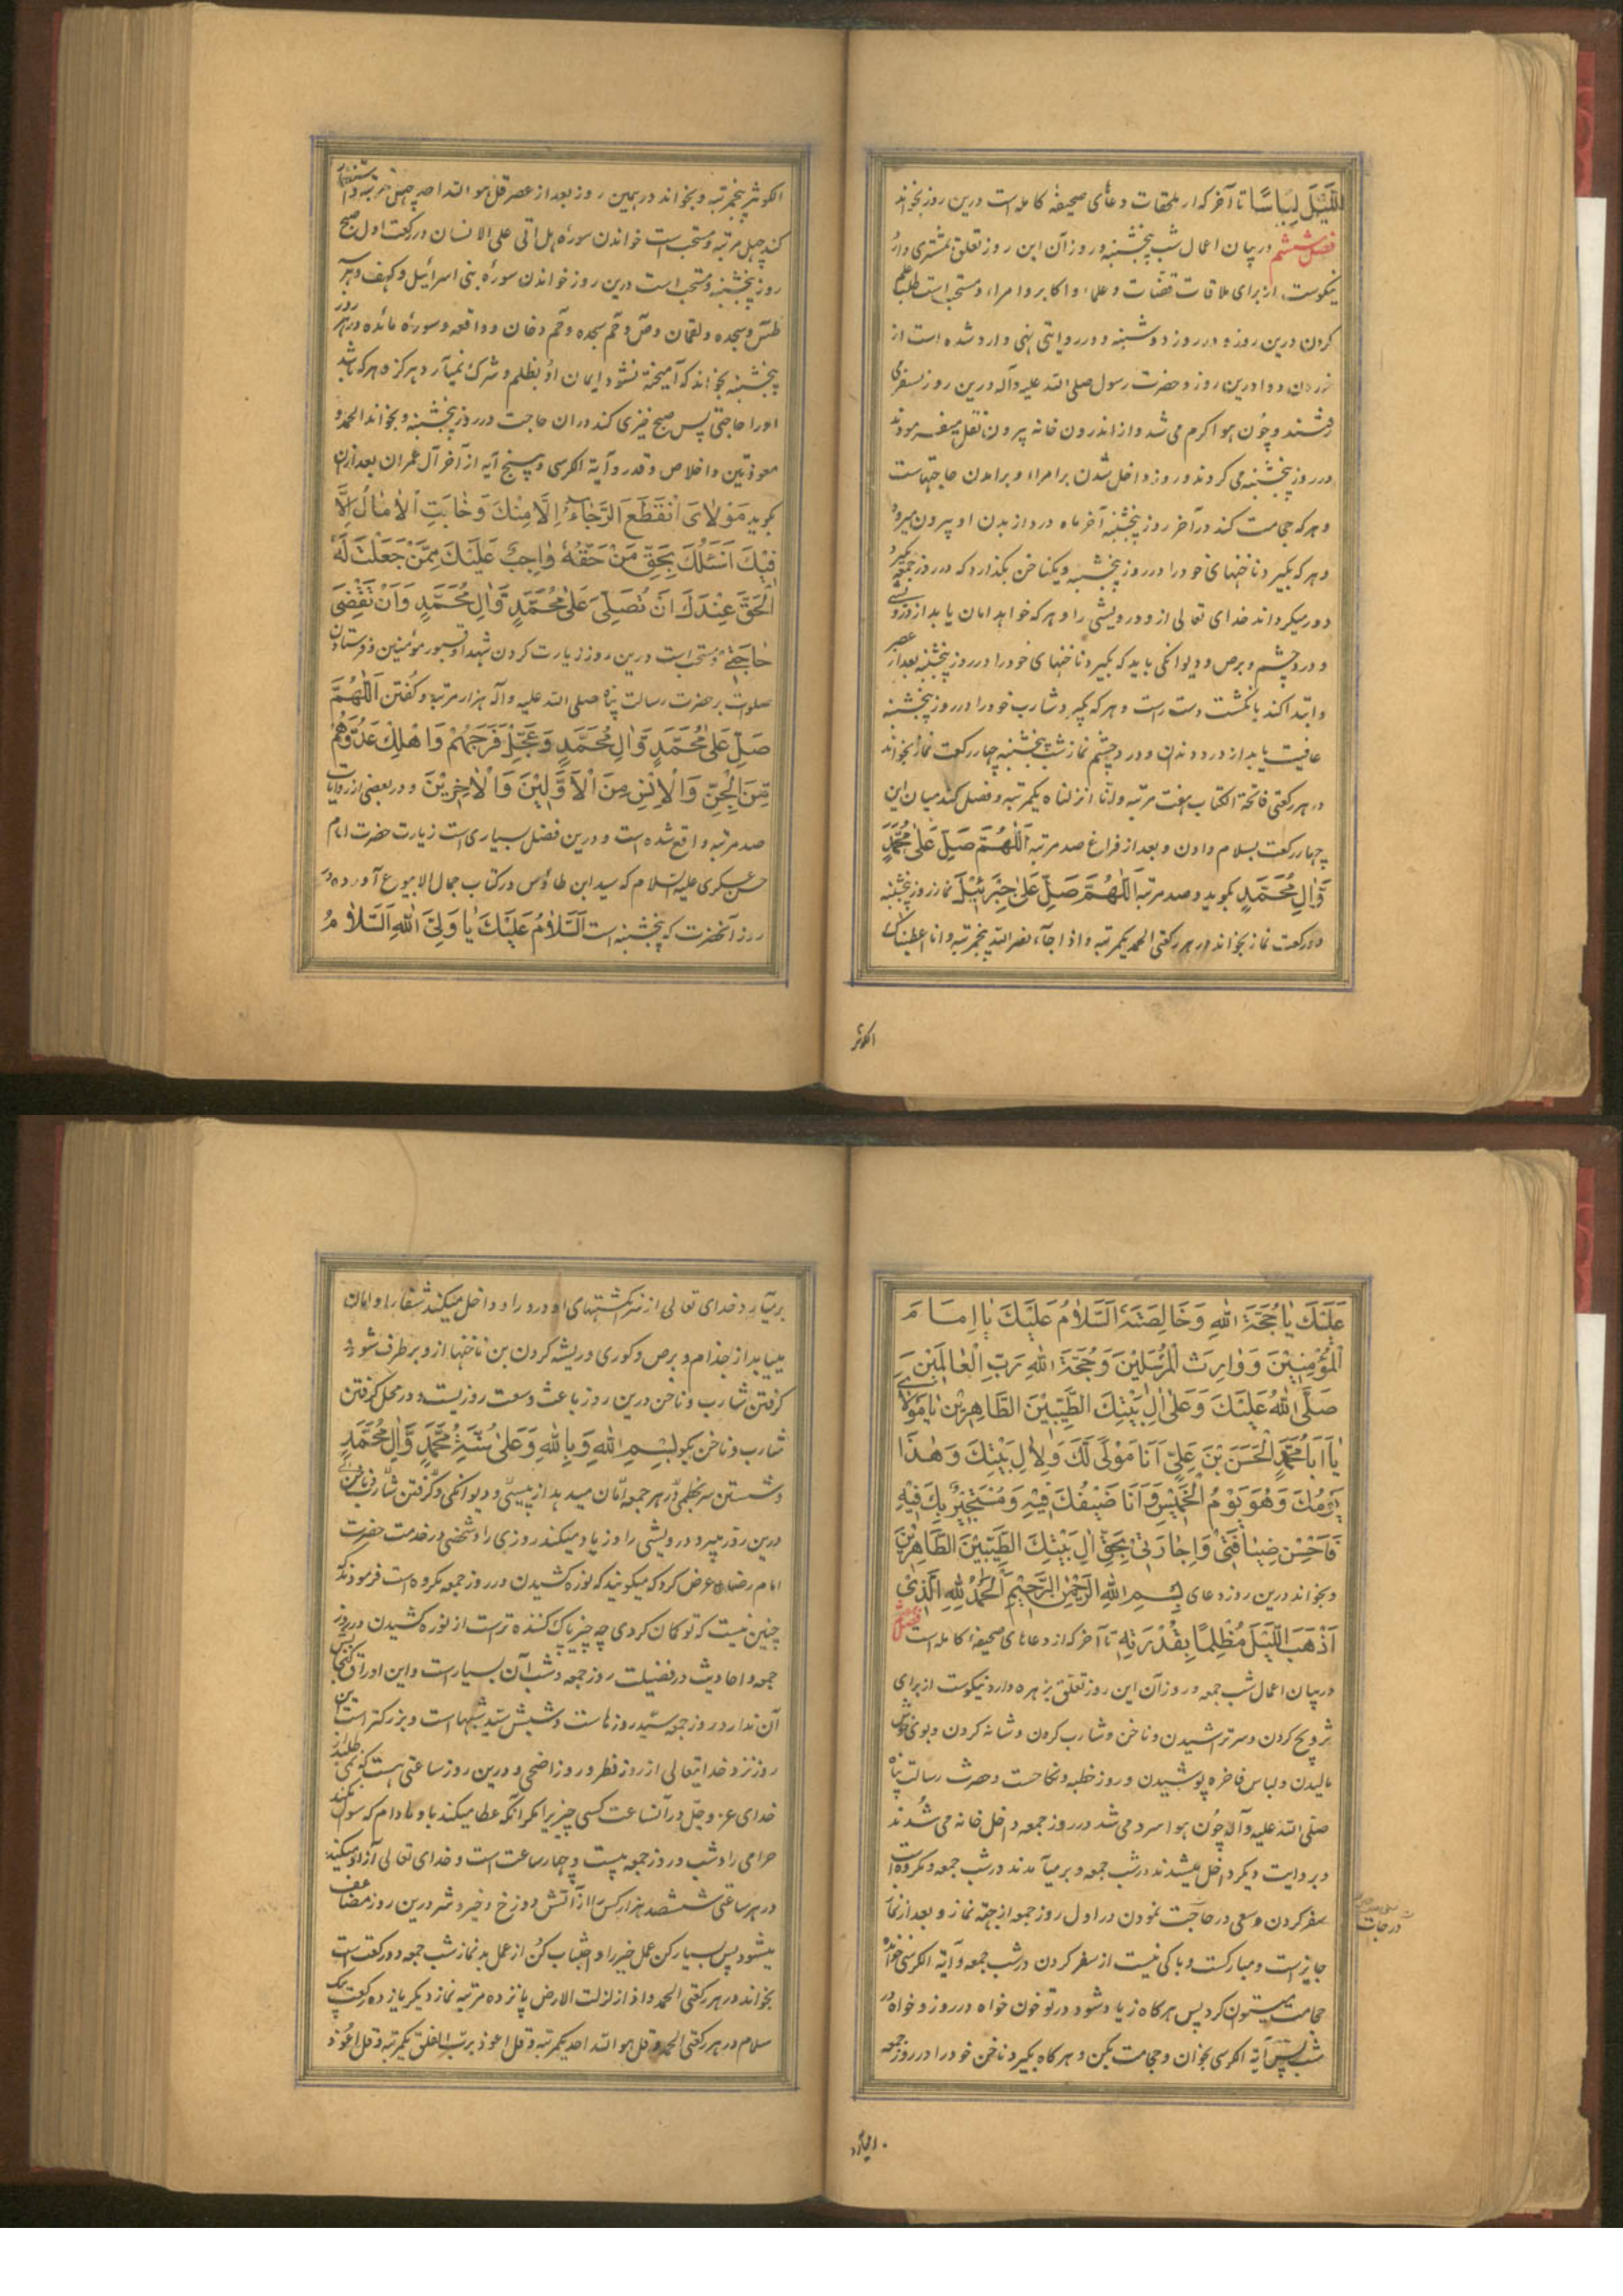 اللَّيْلَ لِبَاسًا تا آخر که از ملحقات دعای صحیفه کامله است درین روز بخواند
فصل ششم در بیان اعمال شب پنجشنبه و روز آن این روز تعلق بمشتری دارد
نیکوست از برای ملاقات قضات و علما و اکابر و امرا و مستحب است طلب علم
کردن درین روز و در روز دوشنبه و در روایتی نهی وارد شده است از
خوردن دوا درین روز و حضرت رسول صلی الله علیه وآله درین روز بسفر می
رفتند و چون هوا گرم می شد و از اندرون خانه بیرون نقل میفرمودند
در روز پنجشنبه می کردند و روز داخل شدن بر امرا و برآمدن حاجتهاست
و هرکه حجامت کند در آخر روز پنجشنبه آخر ماه درد از بدن او بیرون میرود
و هرکه بگیرد ناخنهای خود را در روز پنجشنبه و یکناخن بگذارد که در روز جمعه بگیرد
دور میگرداند خدای تعالی ازو درویشی را و هرکه خواهد امان یابد از
و درد چشم و برص و دیوانگی باید که بگیرد ناخنهای خود را در روز پنجشنبه بعد از عصر
و ابتدا کند بانگشت دست راست و هرکه بگیرد شارب خود را در روز پنجشنبه
عافیت یابد از درد دندان و درد چشم نماز شب پنجشنبه چهار رکعت نماز بخواند
در هر رکعتی فاتحة الکتاب هفت مرتبه و انا انزلناه یکمرتبه و فصل کند میان این
چهار رکعت بسلام دادن و بعد از فراغ صد مرتبه اَللّٰهُمَّ صَلِّ عَلىٰ مُحَمَّدٍ
وَّاٰلِ مُحَمَّدٍ بگوید و صد مرتبه اَللّٰهُمَّ صَلِّ عَلىٰ جَبْرَئِيْلَ نماز روز پنجشنبه
دو رکعت نماز بخواند در هر رکعتی الحمد یکمرتبه و اذا جاء نصر الله پنجمرتبه و انا اعطیناک
الکوثر
الکوثر پنجمرتبه و بخواند در همین روز بعد از عصر قل هو الله احد چهل مرتبه و استغفار
کند چهل مرتبه و مستحب است خواندن سوره هل اتی علی الانسان در رکعت اول صبح
روز پنجشنبه و مستحب است درین روز خواندن سورۀ بنی اسرائیل و کهف و هر سه
طس و سجده و لقمان و ص و حم سجده و حم دخان و واقعه و سورۀ مائده در هر روز
پنجشنبه بخواند که آمیخته نشود ایمان او بظلم و شرک نمیآرد هرگز و هرکه باشد
او را حاجتی پس صبح خیزی کند در ان حاجت در روز پنجشنبه و بخواند الحمد و
معوذتین و اخلاص و قدر و آیة الکرسی و پنج آیه از آخر آل عمران بعد از ان
بگوید مَوْلَاىَ انْقَطَعَ الرَّجَاءُ اِلَّا مِنْكَ وَخَابَتِ الْاٰمَالُ اِلَّا
فِيْكَ اَسْئَلُكَ بِحَقِّ مَنْ حَقُّهُ وَاجِبٌ عَلَيْكَ مِمَّنْ جَعَلْتَ لَهُ
الْحَقَّ عِنْدَكَ اَنْ تُصَلِّىَ عَلىٰ مُحَمَّدٍ وَّاٰلِ مُحَمَّدٍ وَاَنْ تَقْضِىَ
حَاجَتِىْ و مستحب است درین روز زیارت کردن شهدا و قبور مؤمنین و فرستادن
صلوات بر حضرت رسالت پناه صلی الله علیه وآله هزار مرتبه و گفتن اَللّٰهُمَّ
صَلِّ عَلىٰ مُحَمَّدٍ وَّاٰلِ مُحَمَّدٍ وَعَجِّلْ فَرَجَهُمْ وَاَهْلِكْ عَدُوَّهُمْ
مِّنَ الْجِنِّ وَالْاِنْسِ مِنَ الْاَوَّلِيْنَ وَالْاٰخِرِيْنَ و در بعضی از روایات
صد مرتبه واقع شده است و درین فضل بسیاری است زیارت حضرت امام
حسن عسکری علیه السلام که سید ابن طاؤس در کتاب جمال الاسبوع آورده در
روز آنحضرت که پنجشنبه است اَلسَّلَامُ عَلَيْكَ يَا وَلِىَّ اللهِ اَلسَّلَامُ
عَلَيْكَ يَا حُجَّةَ اللهِ وَخَالِصَتَهُ اَلسَّلَامُ عَلَيْكَ يَا اِمَامَ
الْمُؤْمِنِيْنَ وَوَارِثَ الْمُرْسَلِيْنَ وَحُجَّةَ اللهِ رَبِّ الْعَالَمِيْنَ
صَلَّى اللهُ عَلَيْكَ وَعَلىٰ اٰلِ بَيْتِكَ الطَّيِّبِيْنَ الطَّاهِرِيْنَ يَا مَوْلَاىَ
يَا اَبَا مُحَمَّدٍ الْحَسَنَ بْنَ عَلِىٍّ اَنَا مَوْلًى لَكَ وَلِاٰلِ بَيْتِكَ وَهٰذَا
يَوْمُكَ وَهُوَ يَوْمُ الْخَمِيْسِ وَاَنَا ضَيْفُكَ فِيْهِ وَمُسْتَجِيْرٌ بِكَ فِيْهِ
فَاَحْسِنْ ضِيَافَتِىْ وَاِجَارَتِىْ بِحَقِّ اٰلِ بَيْتِكَ الطَّيِّبِيْنَ الطَّاهِرِيْنَ
و بخواند درین روز دعای بِسْمِ اللهِ الرَّحْمٰنِ الرَّحِيْمِ اَلْحَمْدُ لِلّٰهِ الَّذِىْ
اَذْهَبَ اللَّيْلَ مُظْلِمًا بِقُدْرَتِهِ تا آخر که از دعاهای صحیفه کامله است فصل
در بیان اعمال شب جمعه و روز آن این روز تعلق بزهره دارد نیکوست از برای
تزویج کردن و سر تراشیدن و ناخن و شارب کردن و شانه کردن و بوی خوش
مالیدن و لباس فاخره پوشیدن و روز خطبه و نکاحست و حضرت رسالت پناه
صلی الله علیه وآله چون هوا سرد می شد در روز جمعه داخل خانه می شدند
و بروایت دیگر داخل میشدند در شب جمعه و برمیآمدند در شب جمعه و مکروه است
سفر کردن و سعی در حاجت نمودن در اول روز جمعه از جهة نماز و بعد از نماز
درجات
جایز است و مبارکست و باکی نیست از سفر کردن در شب جمعه و آیة الکرسی خوانده
حجامت میتون کرد پس هرگاه زیاد شود در تو خون خواه در روز و خواه در
شب پس آیة الکرسی بخوان و حجامت بکن و هرگاه بگیرد ناخن خود را در روز جمعه
برمیآرد خدای تعالی از سر انگشتهای او درد را و داخل میکند شفا را و امان
مییابد از جذام و برص و کوری و ریشه کردن بن ناخنها ازو برطرف شود و
گرفتن شارب و ناخن درین روز باعث وسعت روزیست و در محل گرفتن
شارب و ناخن بگو بِسْمِ اللهِ وَبِاللهِ وَعَلىٰ سُنَّةِ مُحَمَّدٍ وَّاٰلِ مُحَمَّدٍ
و شستن سر بخطمی در هر جمعه امان میدهد از پیسی و دیوانگی و گرفتن شارب و ناخن
درین روز میبرد درویشی را و زیاد میکند روزی را و شخصی در خدمت حضرت
امام رضا عرض کرد که میگویند که نوره کشیدن در روز جمعه مکروه است فرمودند که
چنین نیست که تو گمان کردی چه چیز پاک کننده تر است از نوره کشیدن در روز
جمعه و احادیث در فضیلت روز جمعه و شب آن بسیار است و این اوراق گنجایش
آن ندارد روز جمعه سید روزهاست و شبش سید شبها است و بزرگتر است این
روز نزد خدایتعالی از روز فطر و روز اضحی و درین روز ساعتی هست که نمی طلبد از
خدای عز و جل در آنساعت کسی چیزیرا مگر آنکه عطا میکند باو مادام که سوال نکند
حرامی را و شب و روز جمعه بیست و چهار ساعت است و خدای تعالی آزاد میکند
در هر ساعتی ششصد هزار کس را از آتش دوزخ و خیر و شر درین روز مضاعف
میشود پس بسیار کن عمل خیر را و اجتناب کن از عمل بد نماز شب جمعه دو رکعت است
بخواند در هر رکعتی الحمد و اذا زلزلت الارض پانزده مرتبه نماز دیگر یازده رکعت بیک
سلام در هر رکعتی الحمد و قل هو الله احد یکمرتبه و قل اعوذ برب الفلق یکمرتبه و قل اعوذ